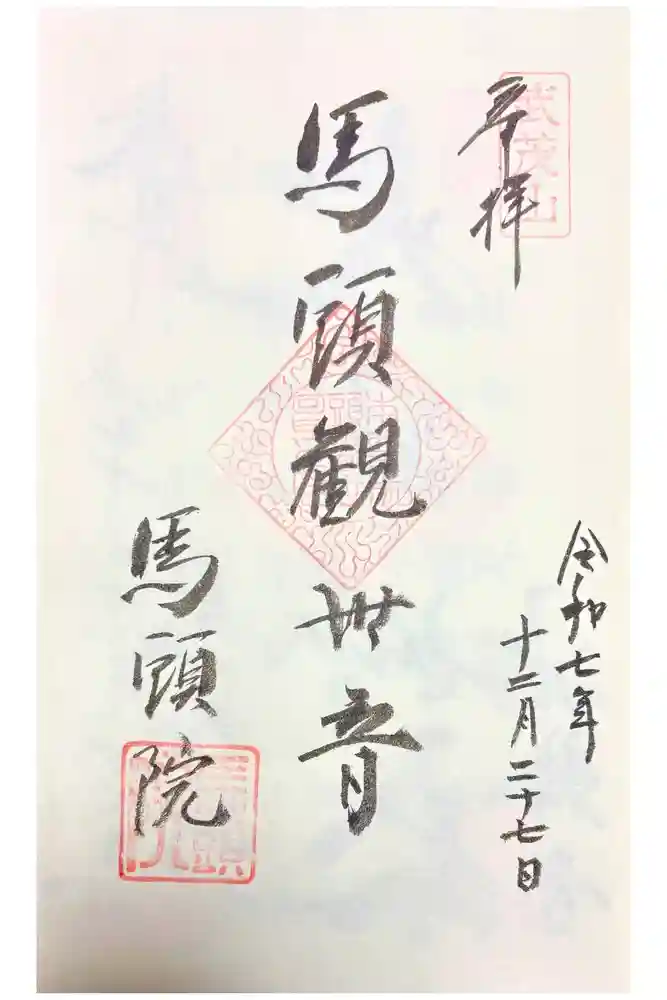 武茂山
奉拝
令和七年
十二月二十七日
馬頭觀世音
馬頭院